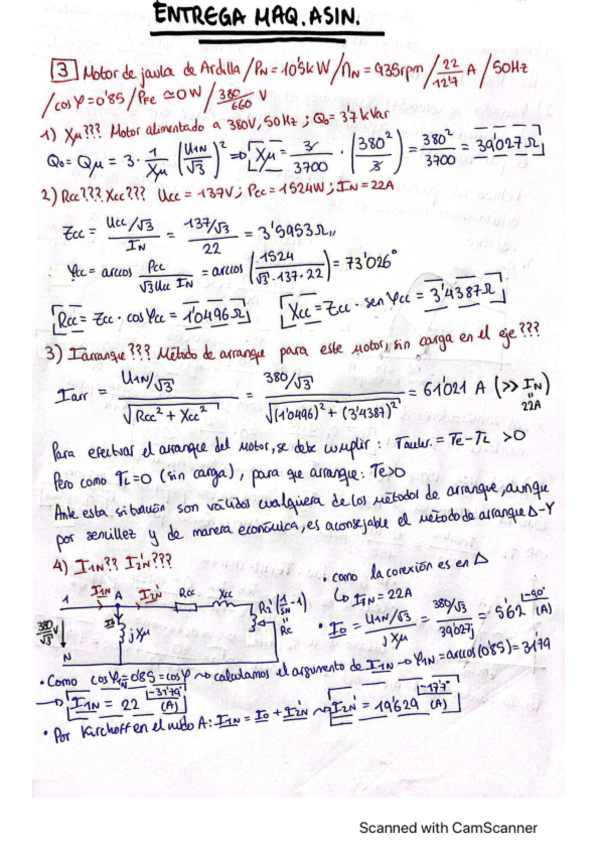 ENTREGA MAQ. ASIN.
3 Motor de jaula de Ardilla / PN = 10'5kW / nN = 935rpm / 22/12'7 A / 50Hz
/ cos φ = 0'85 / PFE ≃ 0W / 380/660 V
1) Xμ??? Motor alimentado a 380V, 50Hz ; Q0 = 3'7 kVar
Q0 = Qμ = 3 · 1/Xμ (U1N/√3)² ⇒ Xμ = 3/3700 · (380²/3) = 380²/3700 = 39'027 Ω
2) Rcc??? Xcc??? Ucc = 137V ; Pcc = 1524W ; IN = 22A
Zcc = (Ucc/√3)/IN = (137/√3)/22 = 3'5953 Ω,,
φcc = arccos Pcc/(√3 Ucc IN) = arccos (1524/(√3 · 137 · 22)) = 73'026°
Rcc = Zcc · cos φcc = 1'0496 Ω Xcc = Zcc · sen φcc = 3'4387 Ω
3) Iarranque??? Método de arranque para este motor, sin carga en el eje???
Iarr = (U1N/√3)/√(Rcc² + Xcc²) = (380/√3)/√((1'0496)² + (3'4387)²) = 61'021 A (>> IN)
22A
Para efectuar el arranque del motor, se debe cumplir : Taceler. = Te - TL > 0
Pero como TL = 0 (sin carga), para que arranque: Te>0
Ante esta situación son válidos cualquiera de los métodos de arranque, aunque
por sencillez y de manera económica, es aconsejable el método de arranque Δ-Y
4) I1N?? I2N'???
1 I1N A I2N' Rcc Xcc R2'(1/SN - 1)
380/√3 V I0 jXμ Rc
N
• como la conexión es en Δ
↳ I1N = 22A
• I0 = (U1N/√3)/(j Xμ) = (380/√3)/(39'027j) = 5'62 |-90° (A)
• Como cos φ1N = 0'85 = cos φ ↝ calculamos el argumento de I1N → φ1N = arccos (0'85) = 31'79
→ I1N = 22 |-31'79° (A)
• Por Kirchoff en el nudo A: I1N = I0 + I2N' ↝ I2N' = 19'629 |-17'7° (A)
Scanned with CamScanner